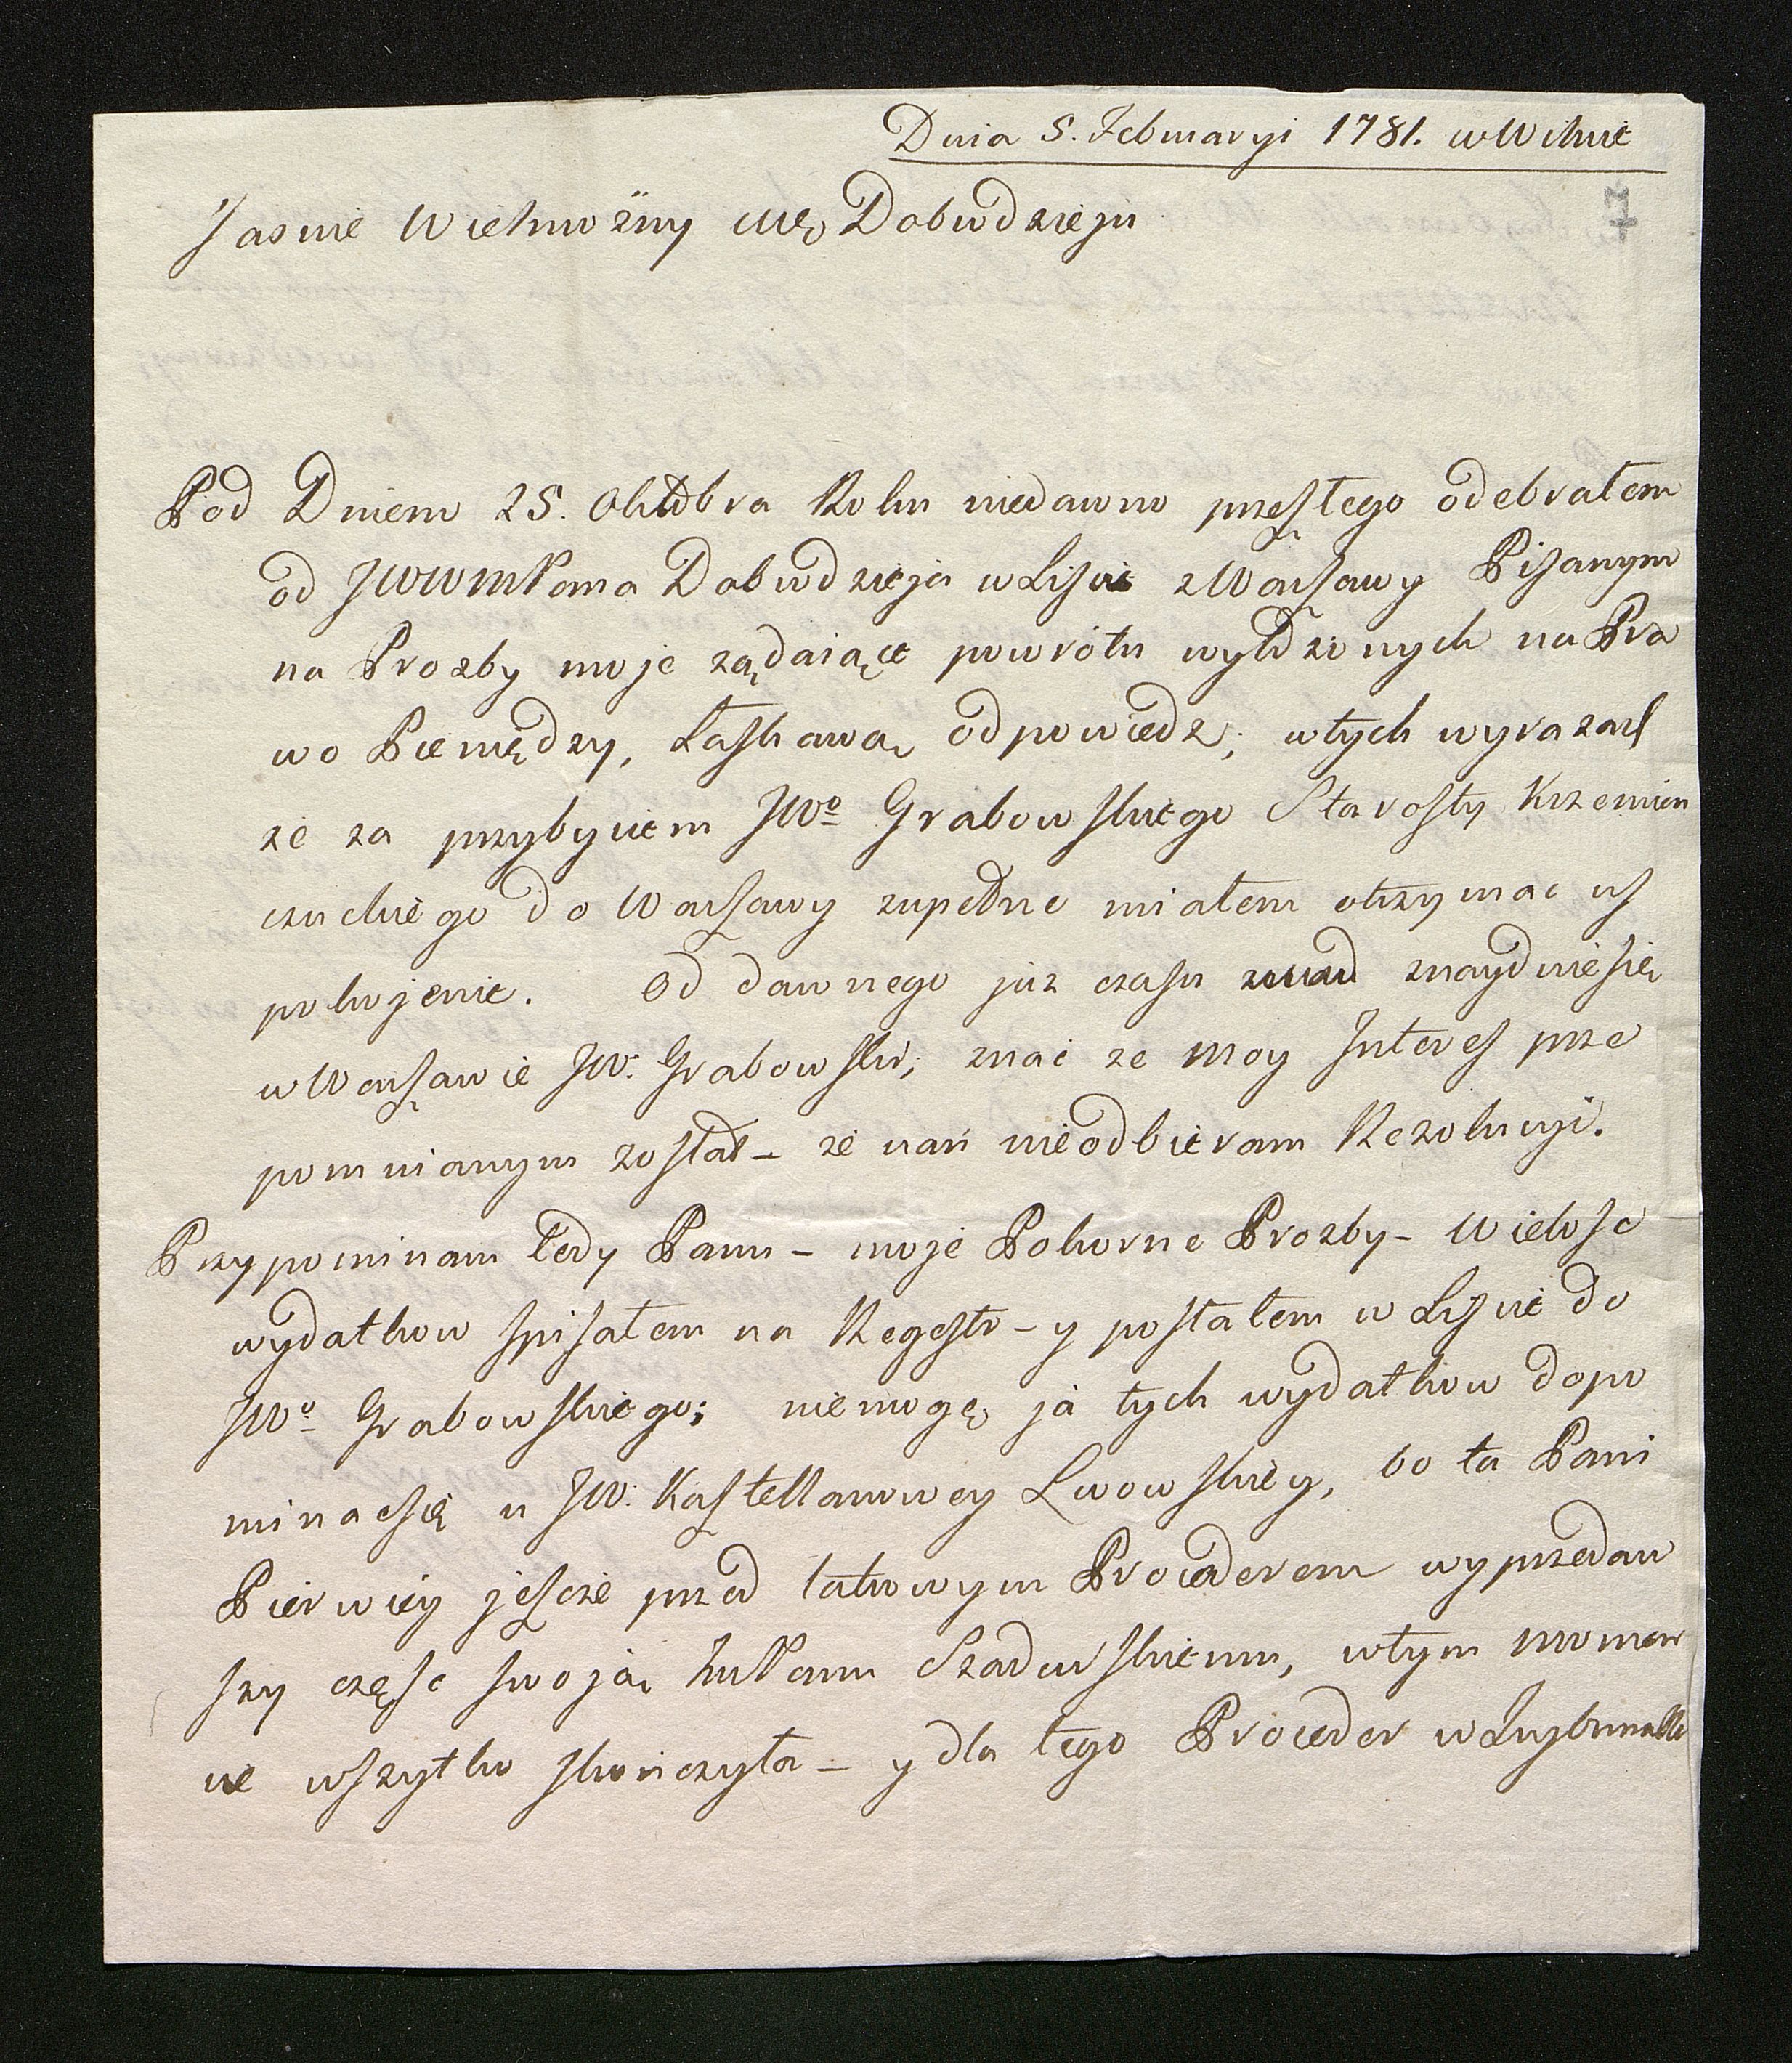 Dnia 5. Februaryi 1781. w Wilnie
7
Jasnie Wielmożny Mcę Dobrodzieju
Pod Dniem 25. Oktobra Roku niedawno przeszłego odebrałem
od JWWMPana Dobrodzieja w Liscie z Warszawy Pisanym
na Prozby moje ządaiące powrotu wyłożonych na Pra
wo Pieniędzy, Łaskawą odpowiedz; w tych wyrazach
ze za przybyciem JWo Grabowskiego Starosty Krzemien
czuckiego do Warszawy zupełne miałem otrzymac us
pokojenie. Od dawnego juz czasu znayduie się
w Warszawie JW. Grabowski; znać ze moy Interes prze
pomnianym został - ze nań nieodbieram Rezolucyi.
Przypominam tedy Panu - moje Pokorne Prozby - Wielosc
wydatkow spisałem na Regestr - y posłałem w Liscie do
JWo Grabowskiego; niemogę ja tych wydatkow dopo
minac się u JW. Kasztellanowey Lwowskiey, bo ta Pani
Pierwiey jeszcze przed takowym Procederem wyprzedaw
szy częsc swoją Panu Szadurskiemu, w tym momen
cie wszytko skończyła - y dla tego Proceder w